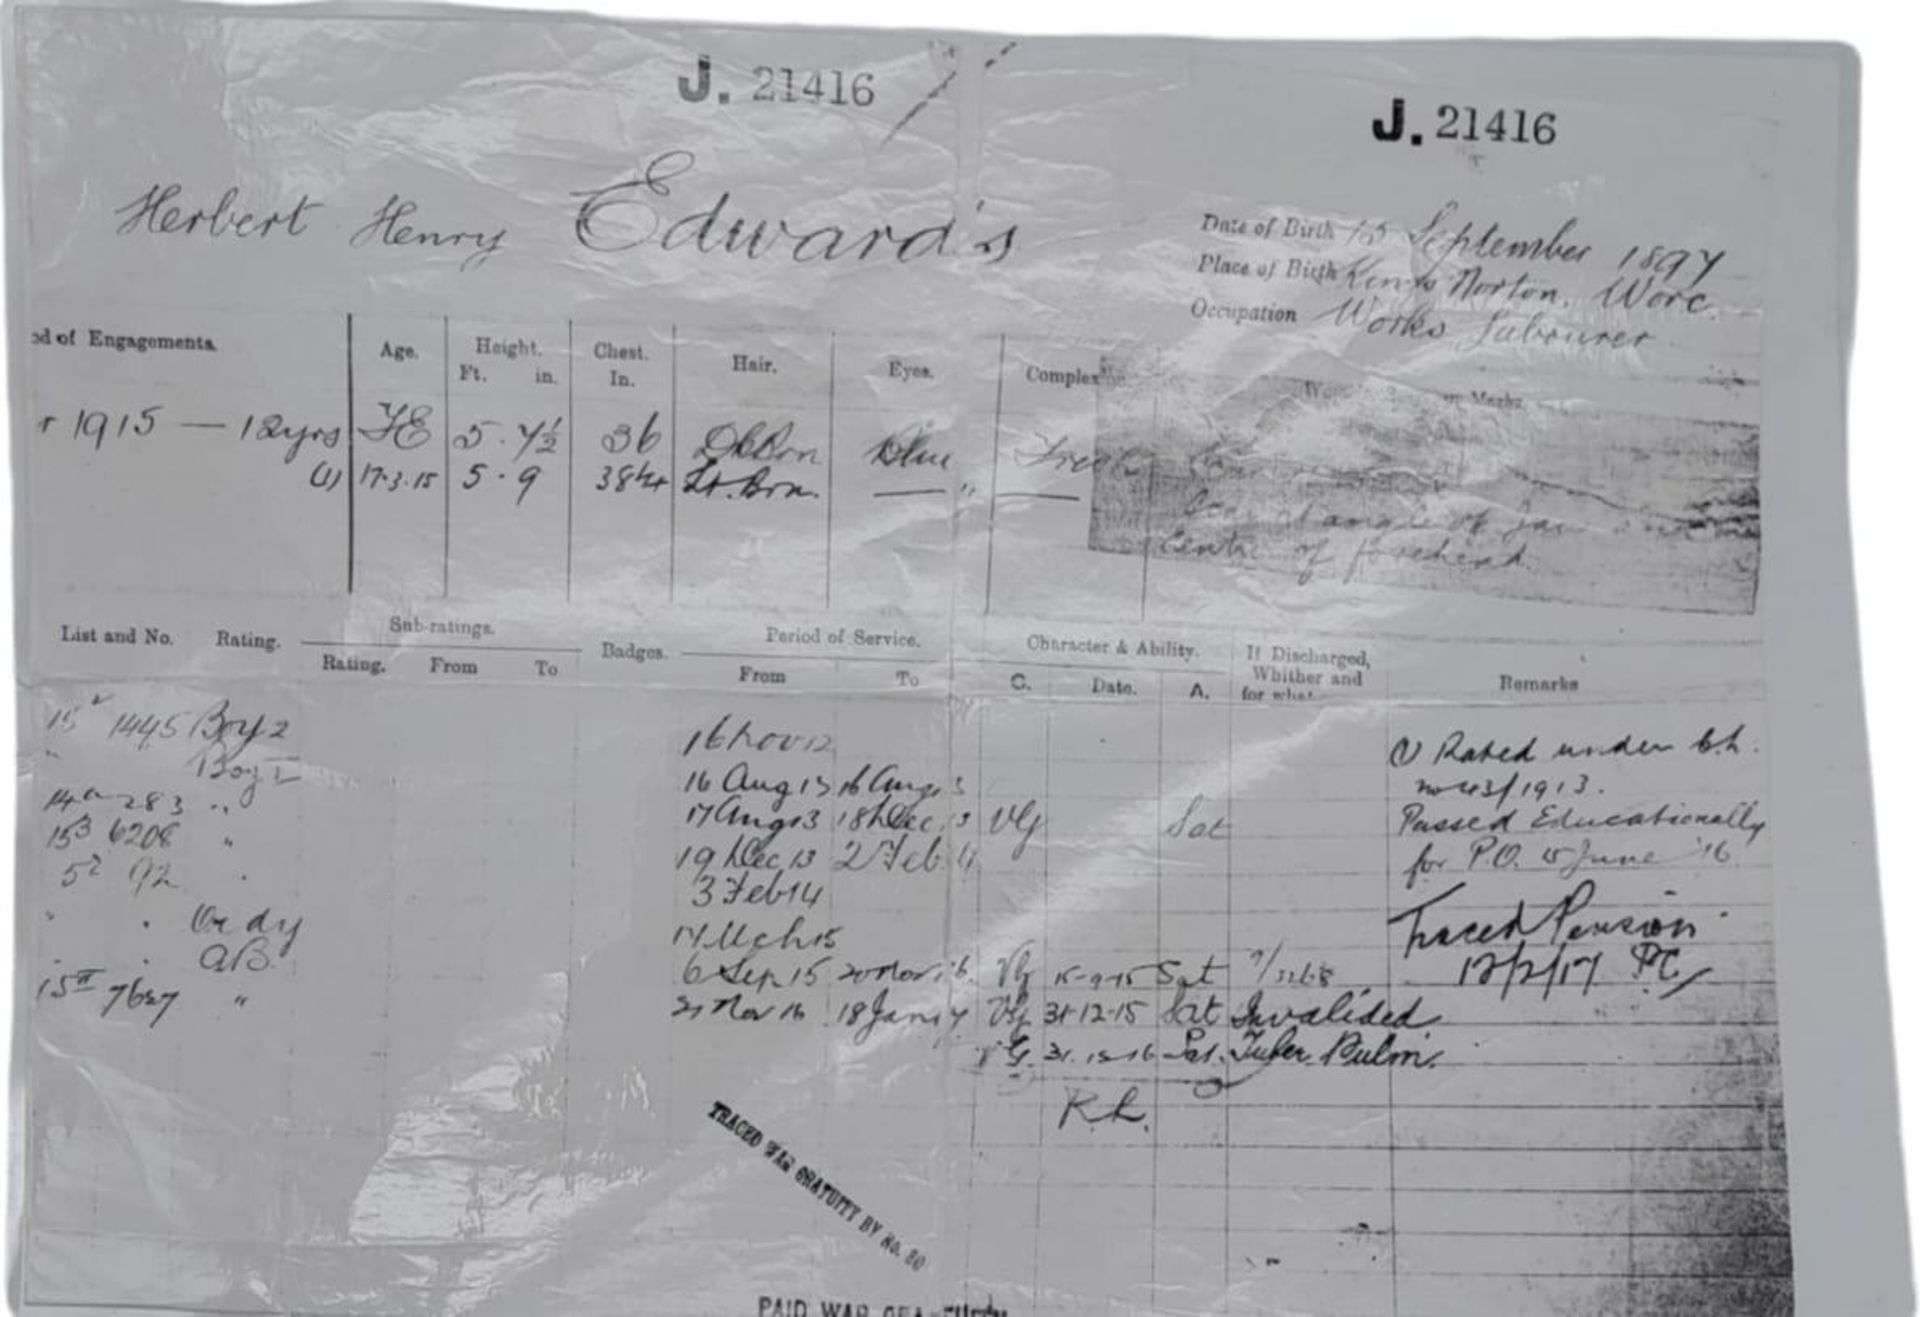 J. 21416
J. 21416
Herbert Henry Edwards
Date of Birth September 1897
Place of Birth Kings Norton, Worc.
Occupation Works Labourer
od of Engagements. Age. Height. Ft. in. Chest. In. Hair. Eyes. Complex
Marks
r 1915 — 12yrs FE 5 . 7½ 36 Dk Brn Blue Fresh
(1) 17.3.15 5 . 9 38 Lt. Brn. — " —
Scar at angle of jaw
Centre of forehead.
List and No. Rating. Sub-ratings. Rating. From To Badges. Period of Service. From To Character & Ability. C. Date. A. If Discharged, Whither and for what Remarks
15² 1445 Boy 2 16 Nov 12 (1) Rated under
" Boy I 16 Aug 13 16 Aug 13 /1913.
14a 283 " 17 Aug 13 18 Dec 13 VG Sat Passed Educationally
15³ 6208 " 19 Dec 13 2 Feb 14 for P.O. June '16
5² 92 " 3 Feb 14
" " Ordy 17 Mch 15 Traced Pension
" " AB. 6 Sep 15 20 Nov 16 VG 15-9-15 Sat 12/2/17
15 II 7627 " 21 Nov 16 18 Jan 17 VG 31-12-15 Sat Invalided
VG. 31.12.16 Sat. Tuber Pulm.
TRACED WAR GRATUITY BY No. 30
PAID WAR